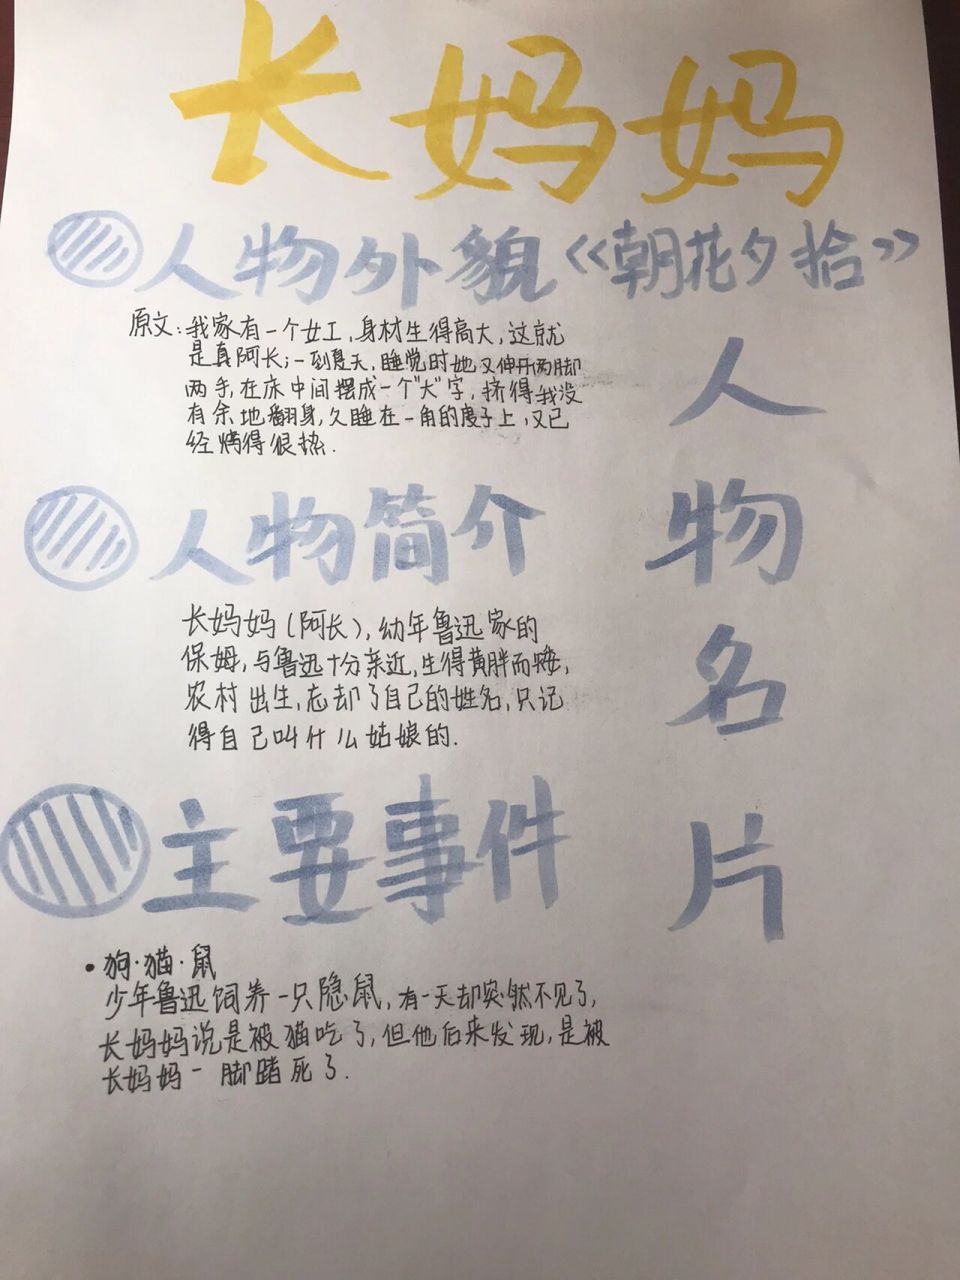 长妈妈
人物外貌《朝花夕拾》
原文：我家有一个女工，身材生得高大，这就
是真阿长；一到夏天，睡觉时她又伸开两脚
两手，在床中间摆成一个“大”字，挤得我没
有余地翻身，久睡在一角的席子上，又已
经烤得很热.
人物简介
长妈妈（阿长），幼年鲁迅家的
保姆，与鲁迅十分亲近，生得黄胖而矮，
农村出生，忘却了自己的姓名，只记
得自己叫什么姑娘的.
主要事件
•狗·猫·鼠
少年鲁迅饲养一只隐鼠，有一天却突然不见了，
长妈妈说是被猫吃了，但他后来发现，是被
长妈妈一脚踏死了.
人
物
名
片